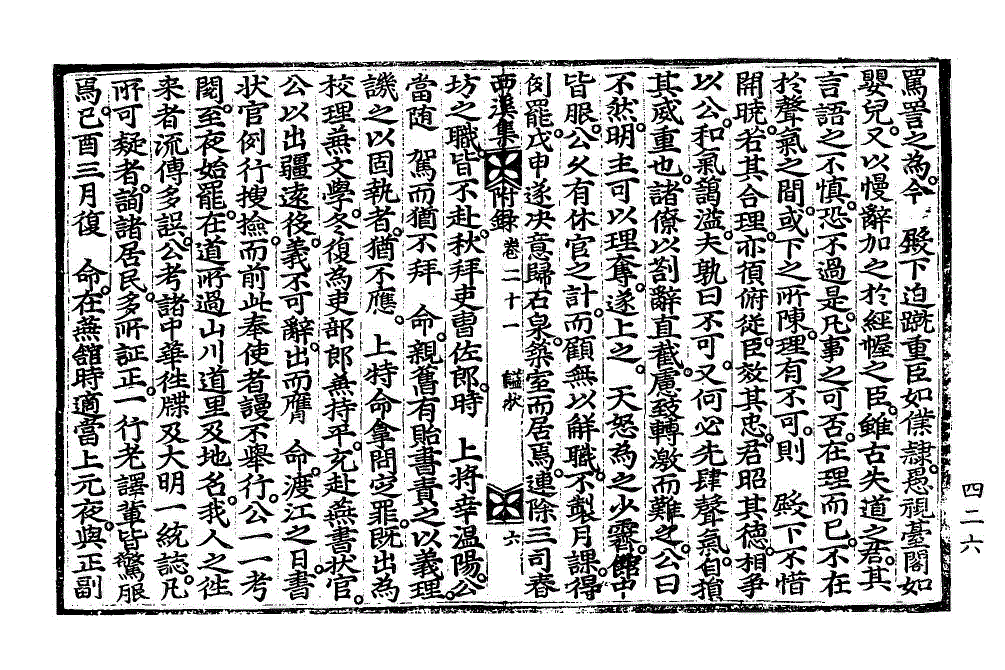 罵詈之爲今 殿下迫蹴重臣如僕隷愚視臺閣如
嬰兒又以慢辭加之於經幄之臣雖古失道之君其
言語之不愼恐不過是凡事之可否在理而已不在
於聲氣之間或下之所陳理有不可則 殿下不惜
開曉若其合理亦須俯從臣效其忠君昭其德相爭
以公和氣藹溢夫孰曰不可又何必先肆聲氣自損
其威重也諸僚以箚辭直截慮致轉激而難之公曰
不然明主可以理奪遂上之 天怒爲之少霽舘中
皆服公久有休官之計而顧無以解職不製月課得
例罷戊申遂決意歸石泉築室而居焉連除三司春
西溪集 附錄 卷二十一 諡狀 六
坊之職皆不赴秋拜吏曹佐郎時 上將幸温陽公
當随 駕而猶不拜 命親舊有貽書責之以義理
譏之以固執者猶不應 上特命拿問定罪既出爲
校理兼文學冬復爲吏部郎兼持平充赴燕書狀官
公以出疆遠役義不可辭出而膺 命渡江之日書
狀官例行搜撿而前此奉使者謾不舉行公一一考
閱至夜始罷在道所過山川道里及地名我人之徃
来者流傳多誤公考諸中華徃牒及大明一統誌凡
所可疑者詢諸居民多所証正一行老譯輩皆驚服
焉己酉三月復 命在燕舘時適當上元夜與正副
四二六